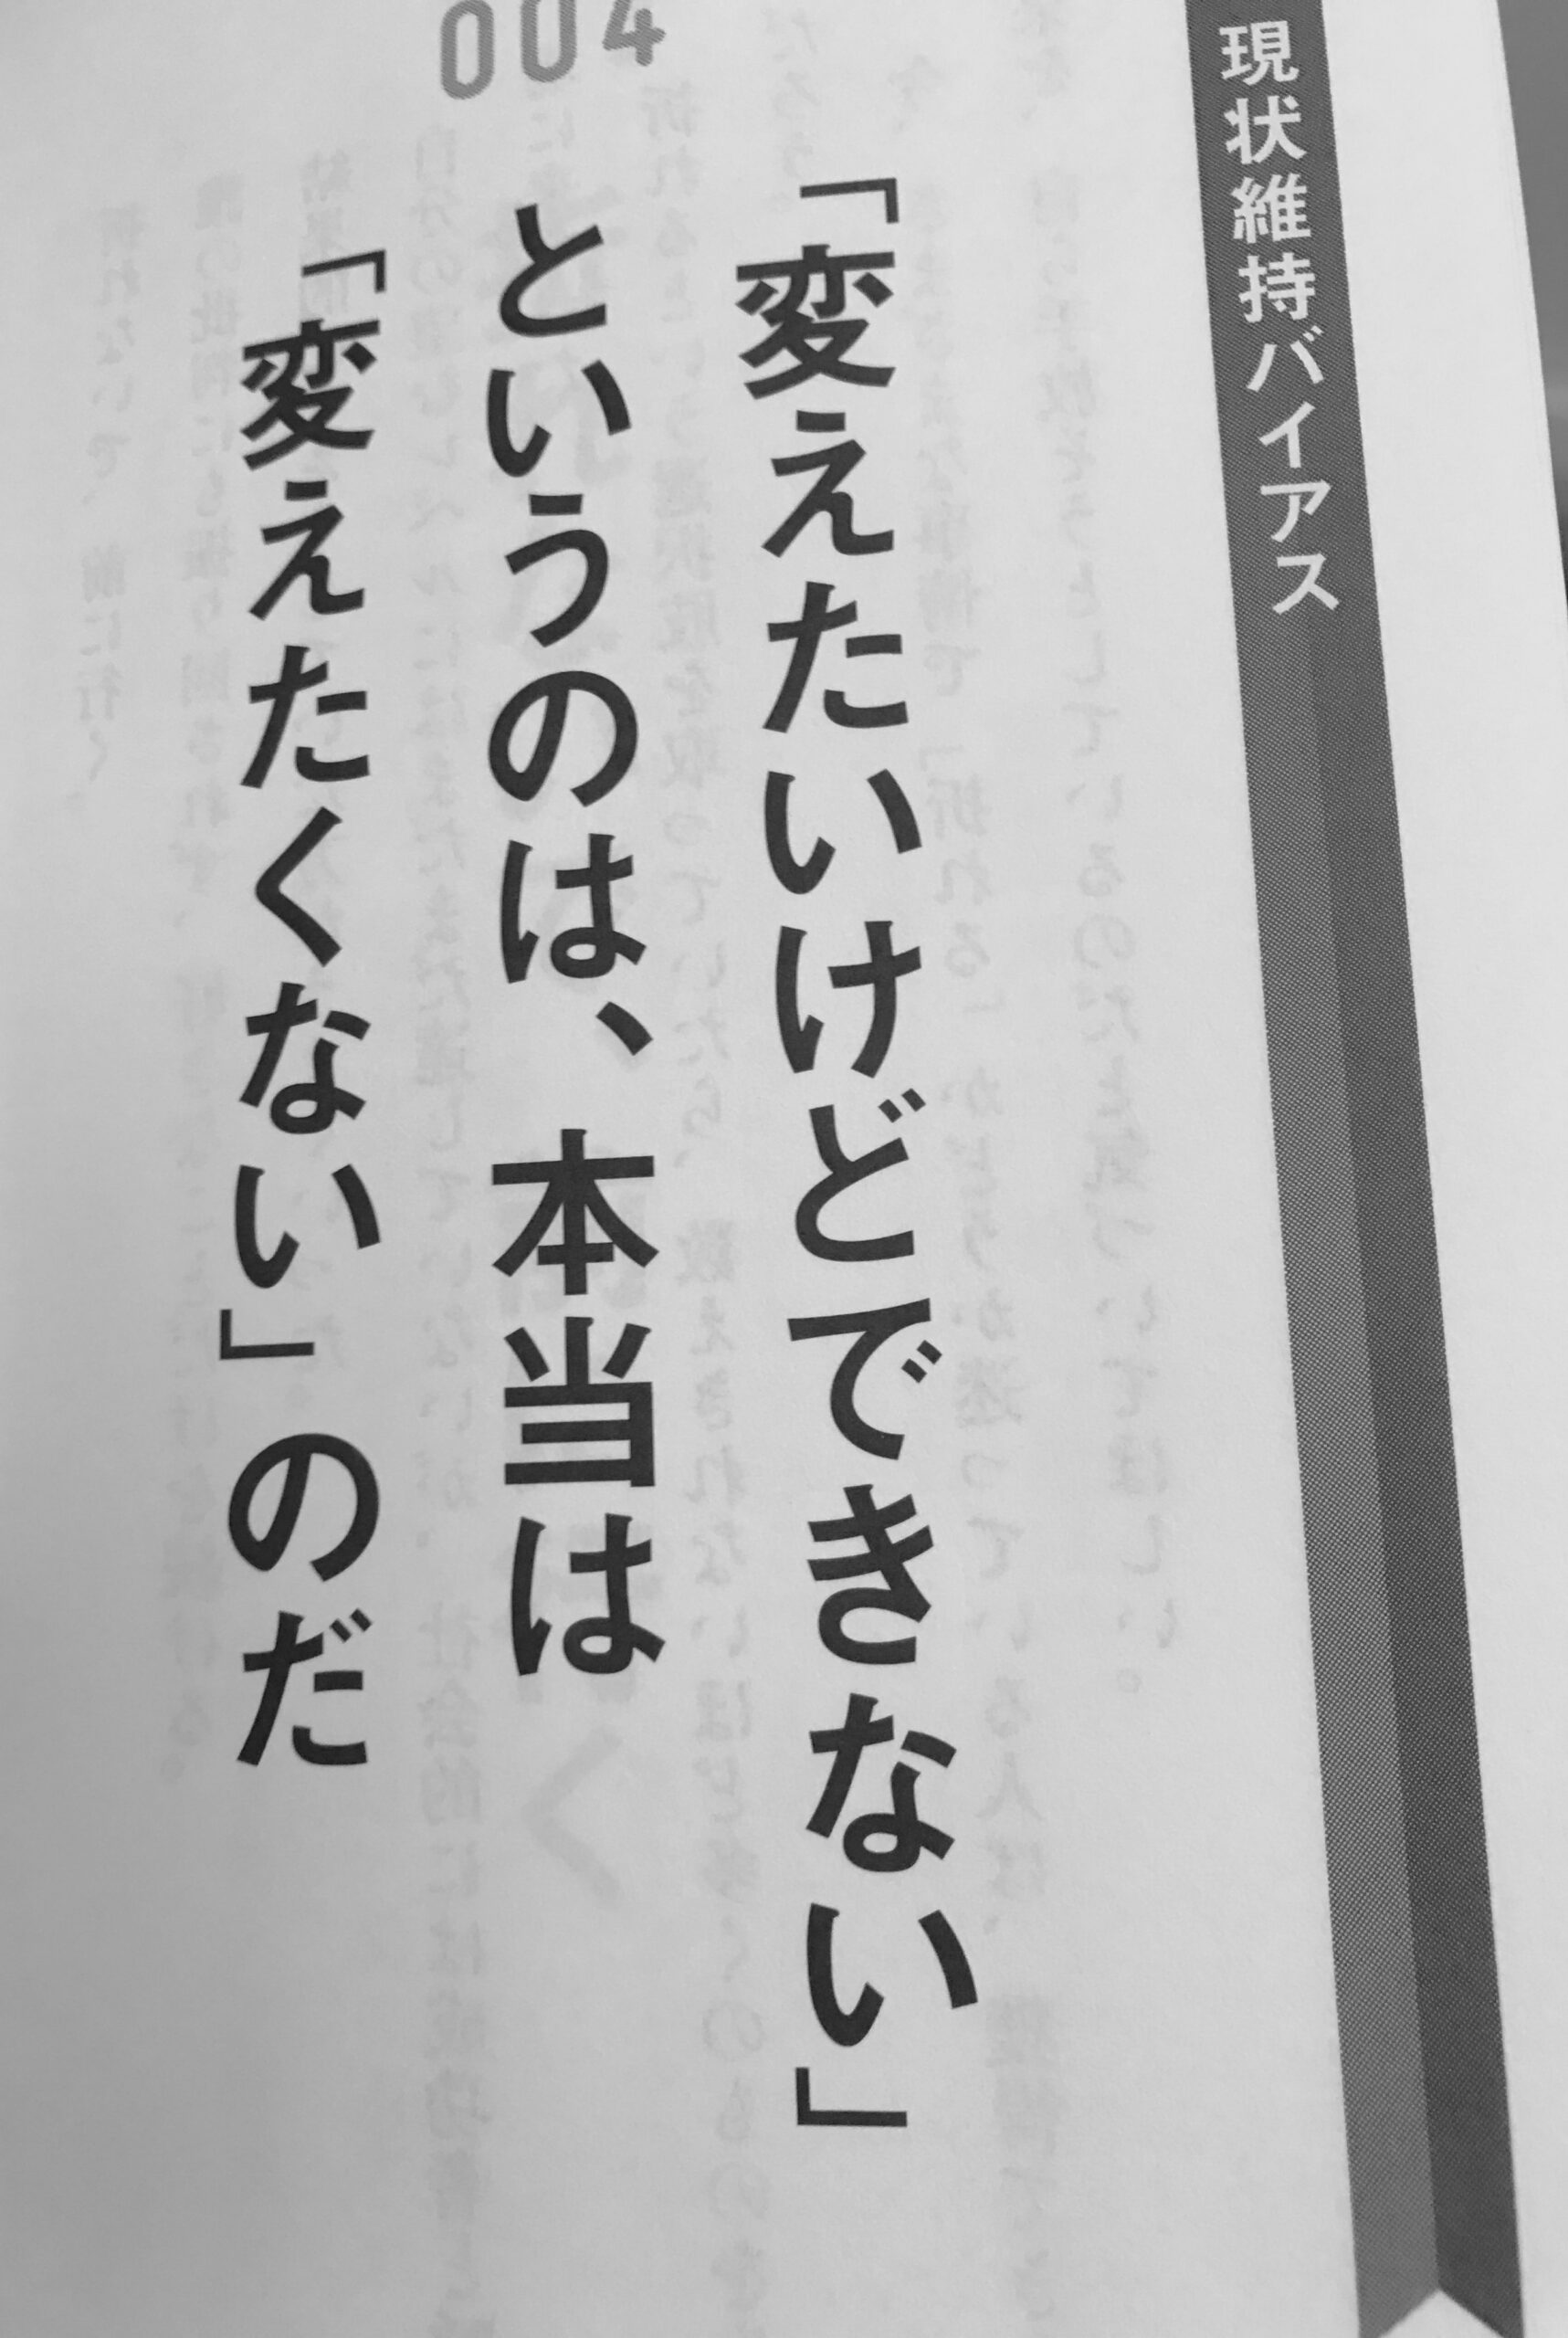 現状維持バイアス
004
「変えたいけどできない」
というのは、本当は
「変えたくない」のだ